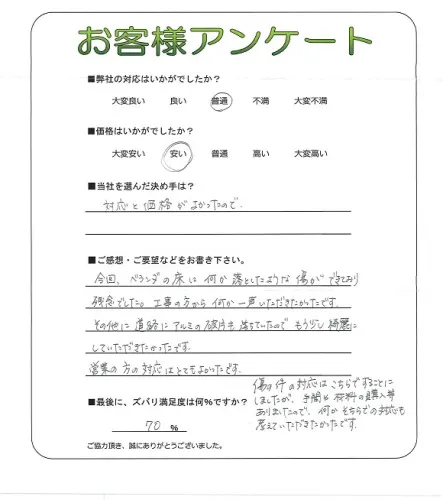 お客様アンケート
■弊社の対応はいかがでしたか？
大変良い 良い 普通 不満 大変不満
■価格はいかがでしたか？
大変安い 安い 普通 高い 大変高い
■当社を選んだ決め手は？
対応と価格がよかったので、
■ご感想・ご要望などをお書き下さい。
今回、ベランダの床に何か落としたような傷ができており
残念でした。工事の方から何か一声いただきたかったです。
その他に道路にアルミの破片も落ちていたのでもう少し綺麗に
していただきたかったです。
営業の方の対応はとてもよかったです。
傷の件の対応はこちらですることに
しましたが、手間と材料の購入等
ありましたので、何かそちらでの対応も
考えていただきたかったです。
■最後に、ズバリ満足度は何%ですか？
70 %
ご協力頂き、誠にありがとうございました。